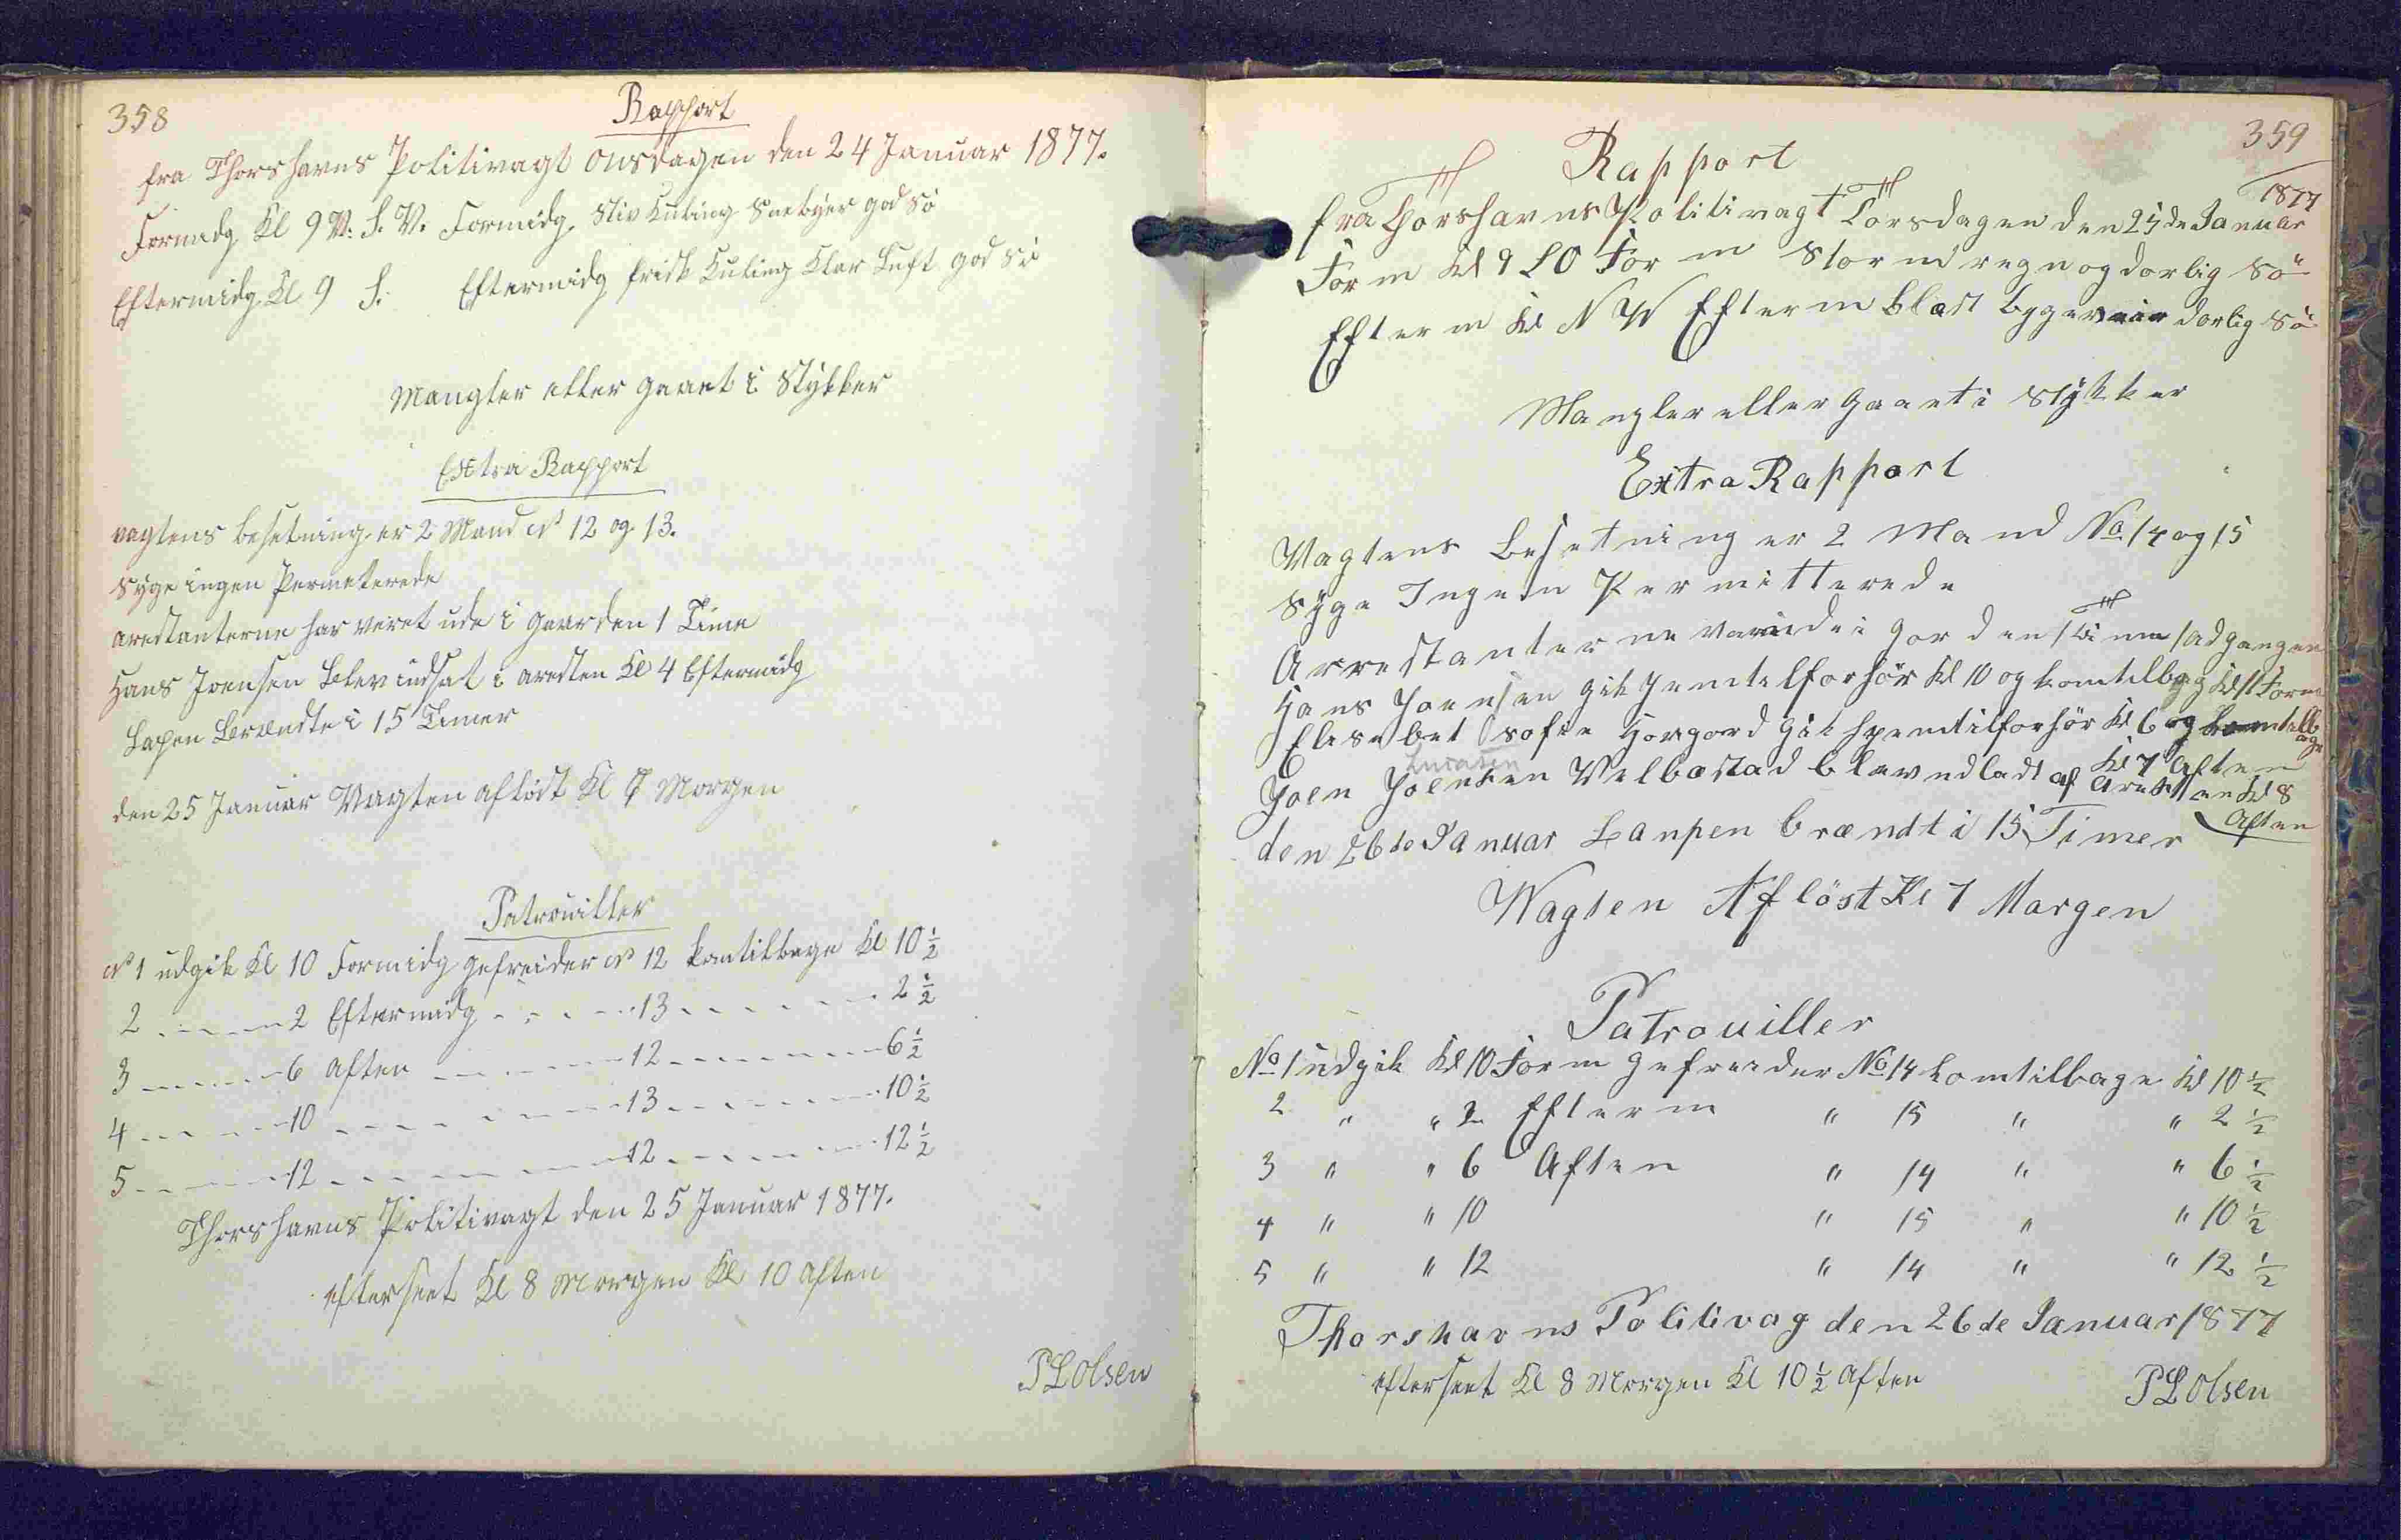 358
Rapport
fra Thorshavns Politivagt Onsdagen den 24 Januar 1877.
Formidg Kl 9 V. S. V. Formidg. Stiv Kuling Snebyer god Sö
Eftermidg Kl 9 S. Eftermidg frisk Kuling Klar Luft god Sö
Mangler eller gaaet i Stykker
Extra Rapport
vagtens besetning er 2 Mand No 12 og 13.
Syge ingen Permeterede
arestanterne har veret ude i gaarden 1 Time
Hans Joensen blev indsat i aresten Kl 4 Eftermidg
Lapen brændte i 15 Timer
den 25 Januar Vagten aflöst Kl 7 Morgen
Patrouiller
No 1 udgik Kl 10 Formidg gefreider No 12 komtilbage Kl 10 1/2
2 - - - - 2 Eftermidg - - - - 13 - - - - - - 2 1/2
3 - - - - 6 Aften - - - - 12 - - - - - - 6 1/2
4 - - - - 10 - - - - - - - 13 - - - - - - 10 1/2
5 - - - - 12 - - - - - - - 12 - - - - - - 12 1/2
Thorshavns Politivagt den 25 Januar 1877.
efterseet Kl 8 Morgen Kl 10 Aften
P L Olsen
359
Rapport
1877
fra Thorshavns Politivagt Torsdagen den 25de Januar
Form Kl 9 SO Form Storm regn og dorlig Sö
Efterm Kl N W Efterm blæst byger dorlig Sö
Mangler eller Gaaet i Stykker
Extra Rapport
Vagtens Besetning er 2 Mand No. 14 og 15
Syge Ingen Permitterede
Arrestanterne var ude i gorden 1 Time 1 adgangen
Hans Joensen gik hemtilforhör Kl 10 og komtilbag Kl 11 Form
Elisebet Sofie Horgord gik hjemtilforhör Kl 6 og komtilb
age
Kl 7 Aften
Joen Joensen Velbastad blev udladt af Aresten Kl 8
Aften
den 26de Januar Lanpen brændt i 15 Timer
Wagten Aflöst Kl 7 Margen
Patrouiller
No 1 udgik Kl 10 Form Gefreider No 14 komtilbage Kl 10 1/2
2 " " 2 Efterm " 15 " " 2 1/2
3 " " 6 Aften " 14 " " 6 1/2
4 " " 10 " 15 " " 10 1/2
5 " " 12 " 14 " " 12 1/2
Thorshavns Politivag den 26de Januar 1877
efterseet Kl 8 Morgen Kl 10 1/2 Aften
P L Olsen